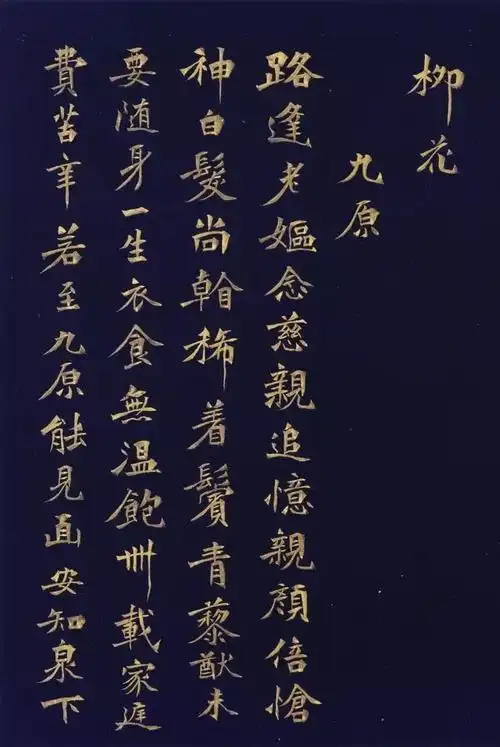 柳花
九原
路逢老嫗念慈親追憶親顔倍愴
神白髮尚稀着鬢青藜猷未
要随身一生衣食無温飽卅載家庭
費苦辛若至九原能見面安知泉下